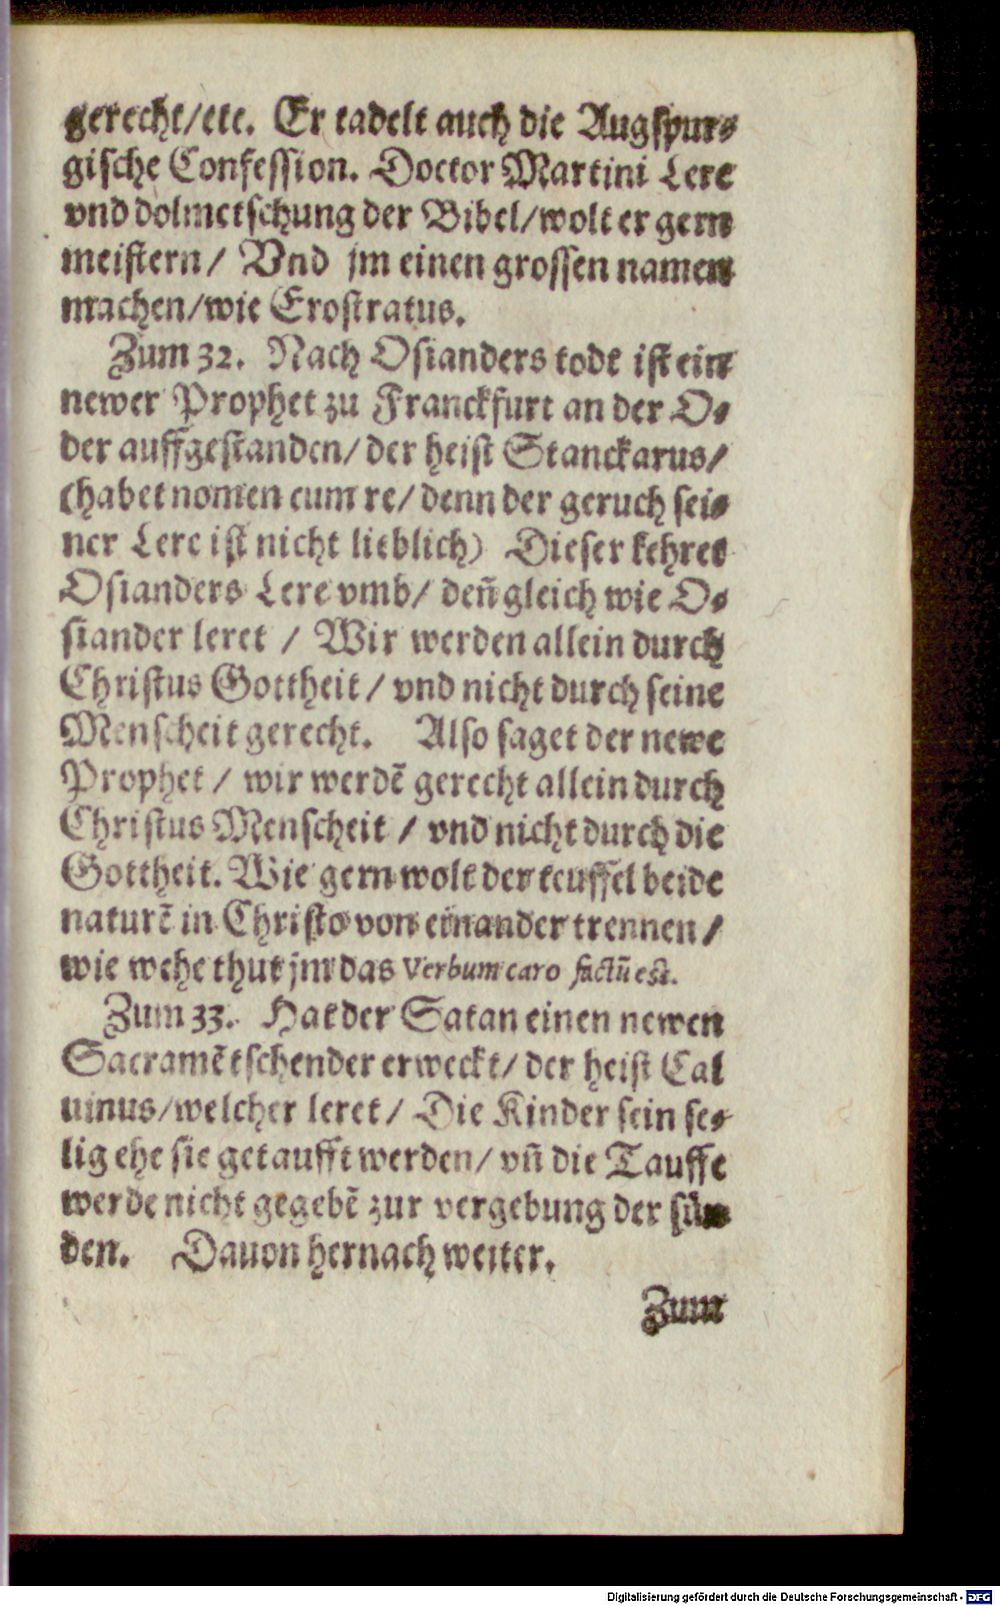 gerecht/etc. Er tadelt auch die Augspur-
gische Confession. Doctor Martini Lere
vnd dolmetschung der Bibel/wolt er gern
meistern/ Vnd jm einen grossen namen
machen/wie Erostratus.
Zum 32. Nach Osianders todt ist ein
newer Prophet zu Franckfurt an der O-
der auffgestanden/ der heist Stanckarus/
(habet nomen cum re/ denn der geruch sei-
ner Lere ist nicht lieblich) Dieser kehret
Osianders Lere vmb/ deñ gleich wie O-
siander leret / Wir werden allein durch
Christus Gottheit / vnd nicht durch seine
Menscheit gerecht. Also saget der newe
Prophet / wir werdẽ gerecht allein durch
Christus Menscheit / vnd nicht durch die
Gottheit. Wie gern wolt der teuffel beide
naturẽ in Christo von einander trennen /
wie wehe thut jm das Verbum caro factũ est.
Zum 33. Hat der Satan einen newen
Sacramẽtschender erweckt/ der heist Cal
uinus/welcher leret/ Die Kinder sein se-
lig ehe sie getaufft werden/ vñ die Tauffe
werde nicht gegebẽ zur vergebung der sün
den. Dauon hernach weiter.
Zum
Digitalisierung gefördert durch die Deutsche Forschungsgemeinschaft - DFG